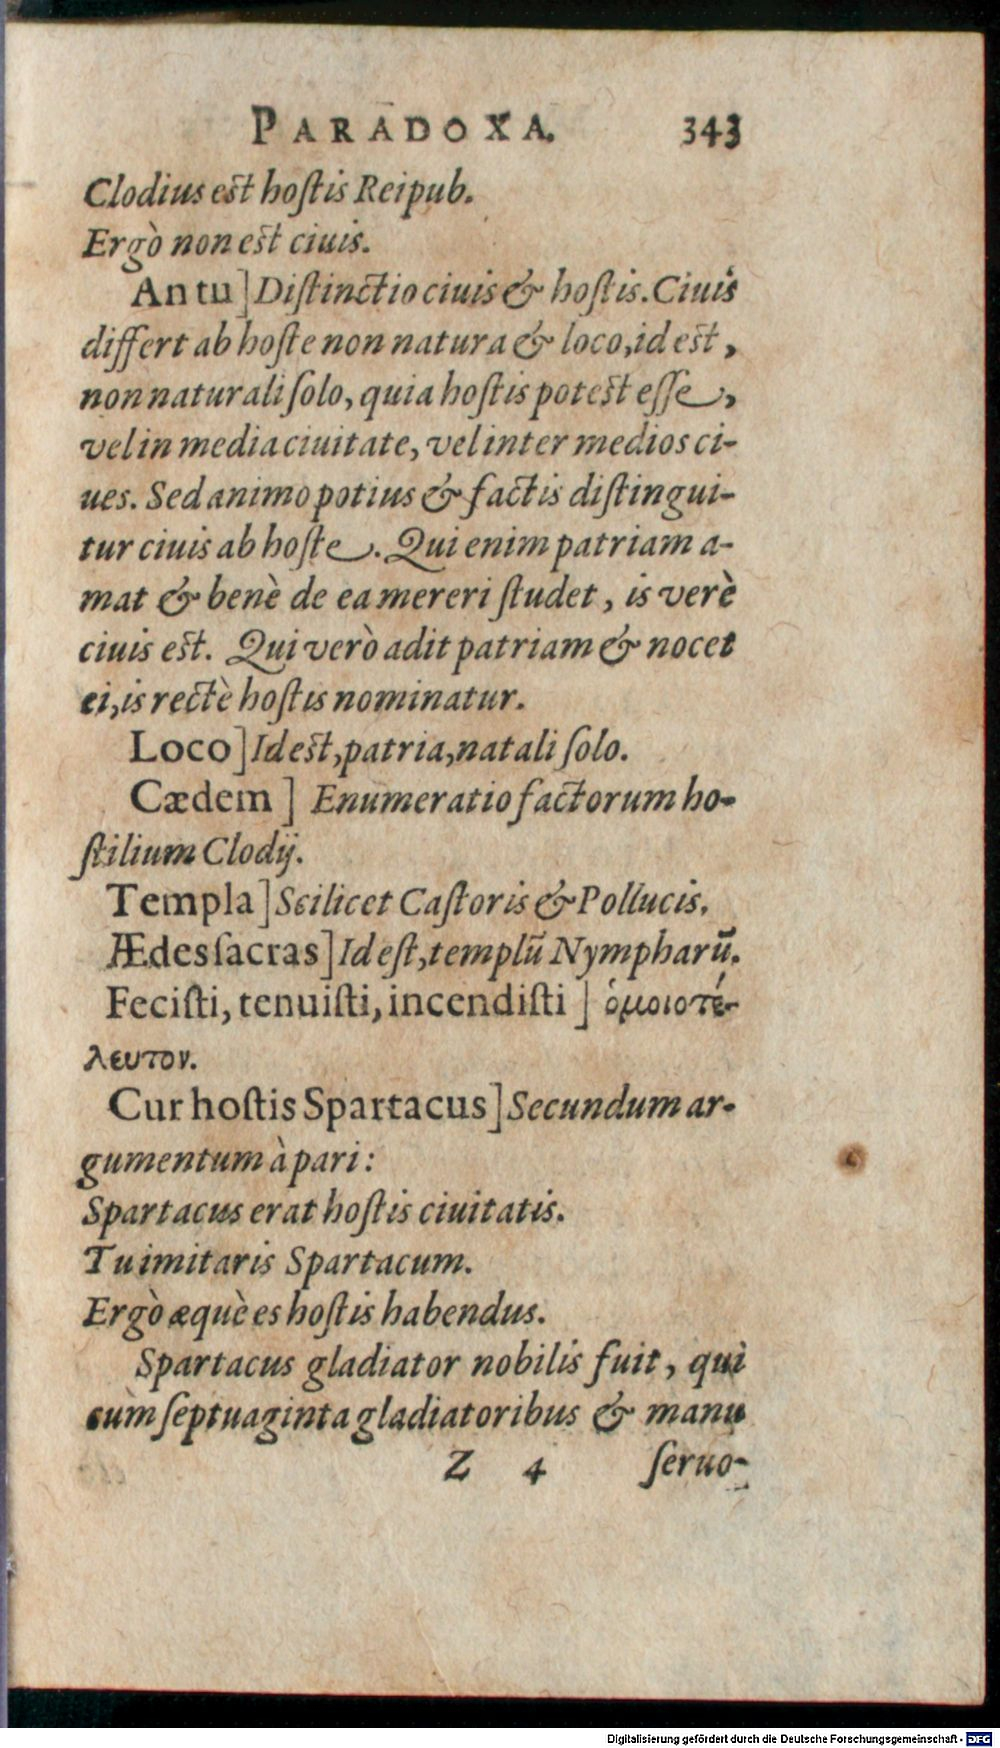 PARADOXA. 343
Clodius est hoſtis Reipub.
Ergò non est ciuis.
An tu] Diſtinctio ciuis & hoſtis. Ciuis
differt ab hoſte non natura & loco, id est,
non naturali ſolo, quia hoſtis potest eſſe,
vel in media ciuitate, vel inter medios ci-
ues. Sed animo potius & factis diſtingui-
tur ciuis ab hoſte. Qui enim patriam a-
mat & benè de ea mereri ſtudet, is verè
ciuis est. Qui verò adit patriam & nocet
ei, is rectè hoſtis nominatur.
Loco] Id est, patria, natali ſolo.
Cædem ] Enumeratio factorum ho-
ſtilium Clodij.
Templa] Scilicet Caſtoris & Pollucis.
Ædes ſacras] Id eſt, templū Nympharū.
Feciſti, tenuiſti, incendiſti ] ὁμοιοτέ-
λευτον.
Cur hoſtis Spartacus] Secundum ar-
gumentum à pari:
Spartacus erat hoſtis ciuitatis.
Tu imitaris Spartacum.
Ergò æquè es hoſtis habendus.
Spartacus gladiator nobilis fuit, qui
cùm ſeptuaginta gladiatoribus & manu
Z 4 ſeruo-
Digitalisierung gefördert durch die Deutsche Forschungsgemeinschaft - DFG